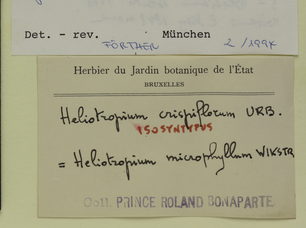 Det. - rev. München
FÖRTHER 2/1994
Herbier du Jardin botanique de l'État
BRUXELLES
Heliotropium crispiflorum URB.
ISOSYNTYPUS
= Heliotropium microphyllum WIKSTR
Coll. PRINCE ROLAND BONAPARTE